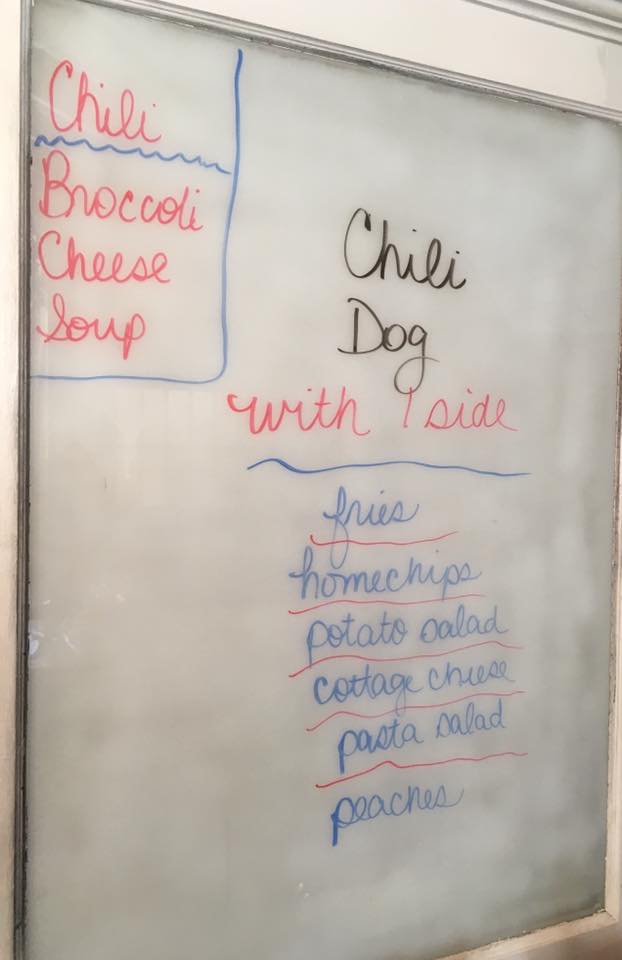 Chili
Broccoli
Cheese
Soup
Chili
Dog
with 1 side
fries
homechips
potato salad
cottage cheese
pasta salad
peaches